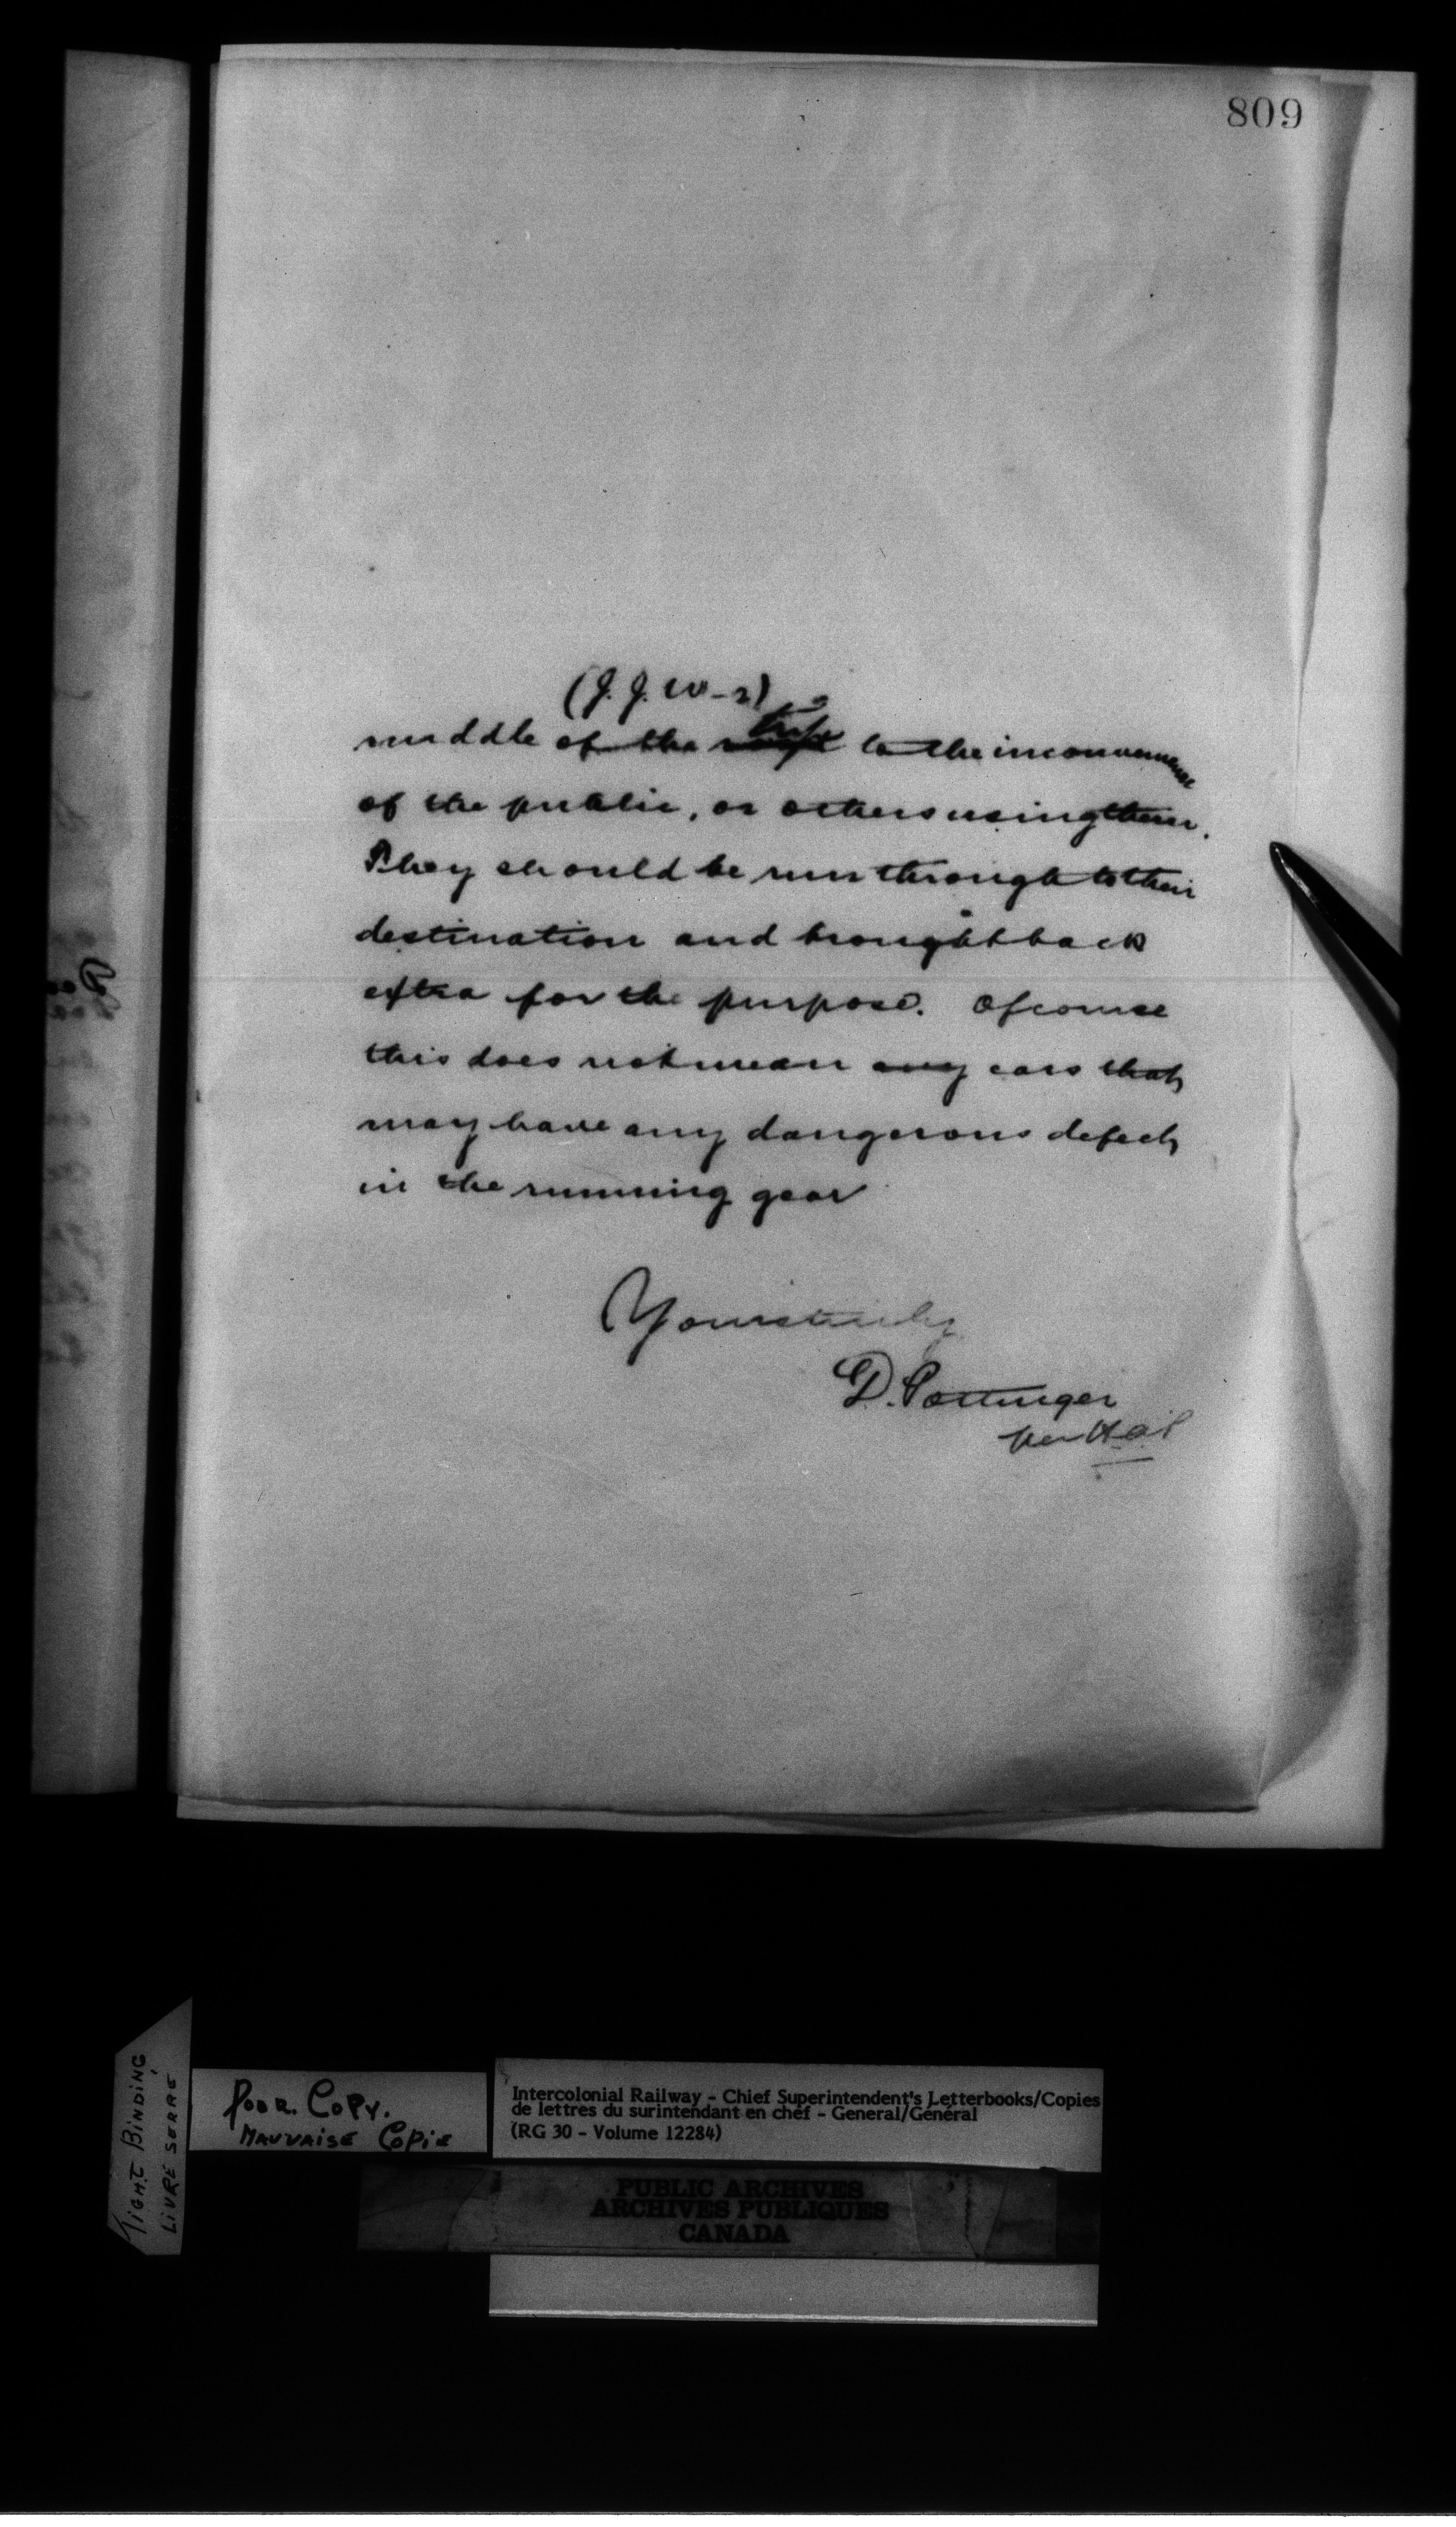 809
(J. J. W-2)
middle of the trip to the inconvenience
of the public, or others using them.
They should be run through to their
destination and brought back
extra for the purpose. Of course
this does not mean any cars that
may have any dangerous defect
in the running gear
Yours truly
D. Pottinger
per
TIGHT BINDING
LIVRE SERRÉ
POOR COPY.
MAUVAISE COPIE
Intercolonial Railway - Chief Superintendent's Letterbooks/Copies
de lettres du surintendant en chef - General/Général
(RG 30 - Volume 12284)
PUBLIC ARCHIVES
ARCHIVES PUBLIQUES
CANADA